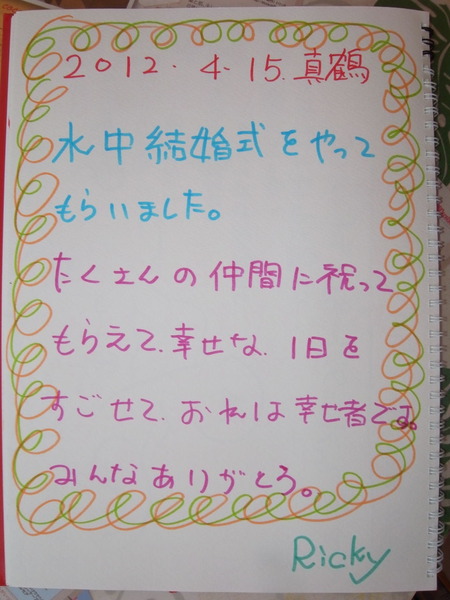 2012.4.15.真鶴
水中結婚式をやって
もらいました。
たくさんの仲間に祝って
もらえて、幸せな、1日を
すごせて、おれは幸せ者です。
みんなありがとう。
Ricky